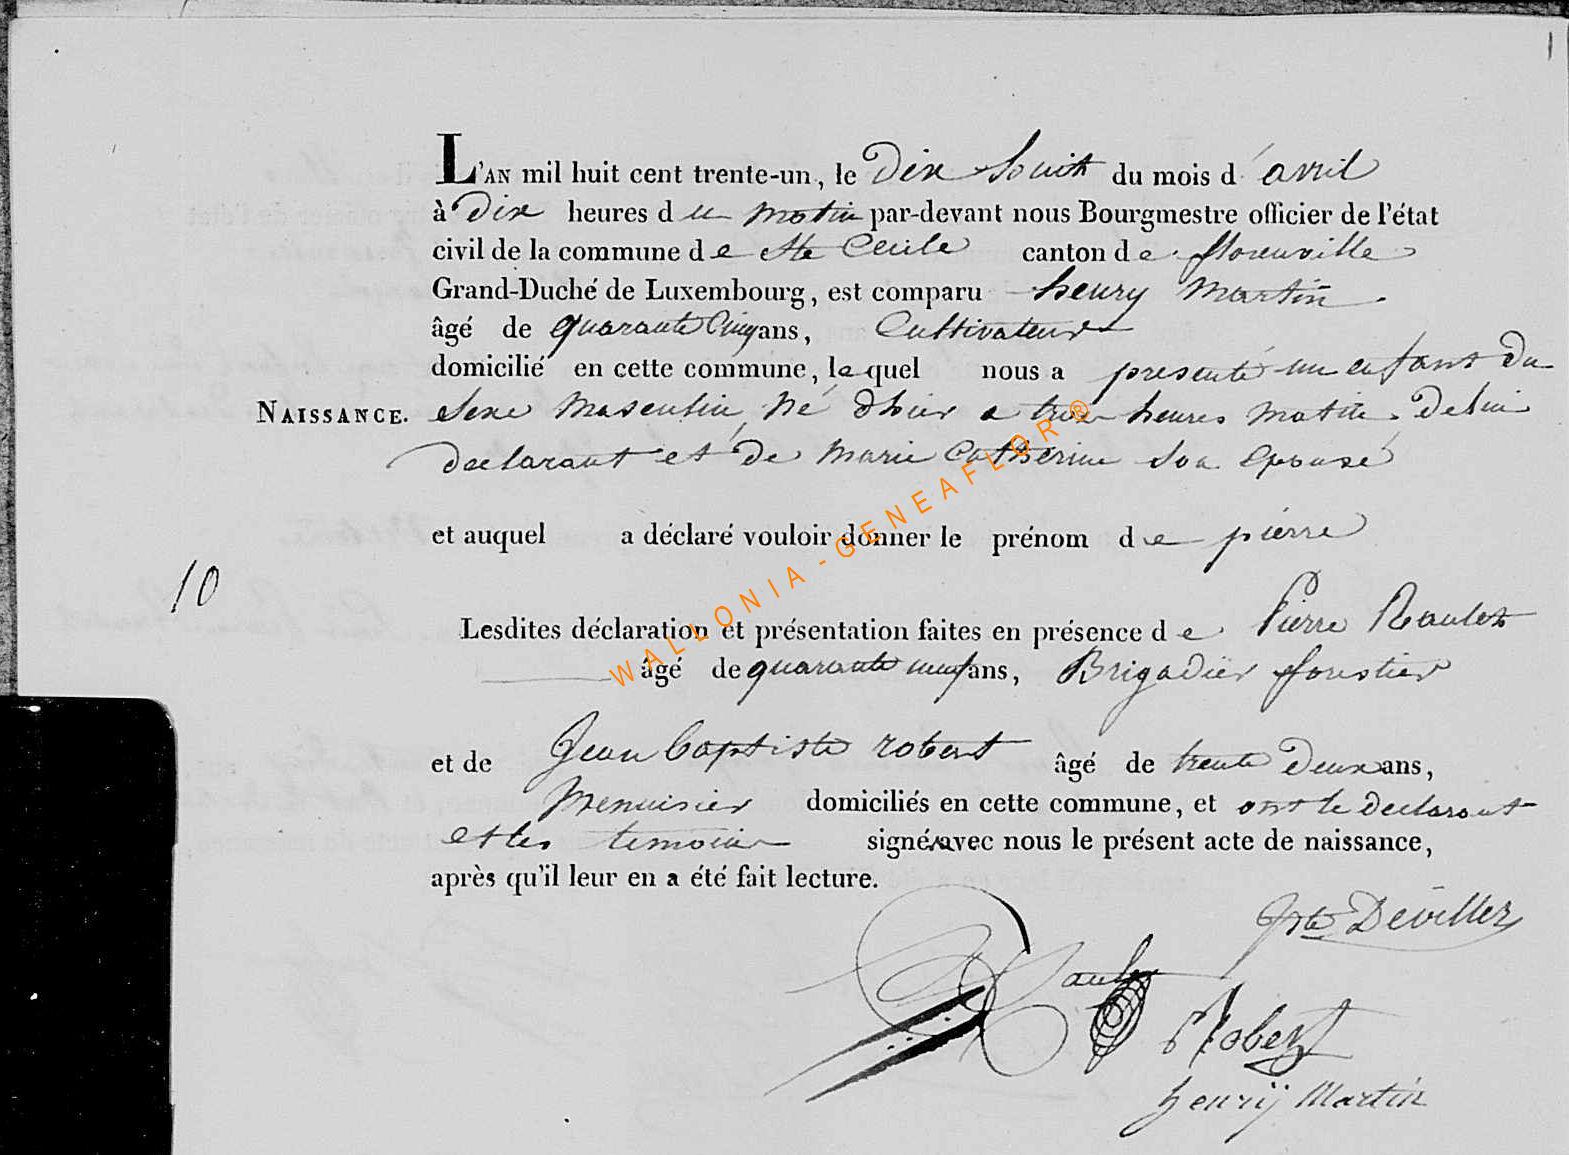 L'AN mil huit cent trente-un, le Dix huit du mois d'avril
à Dix heures du matin par-devant nous Bourgmestre officier de l'état
civil de la commune de Ste Cecile canton de florenville
Grand-Duché de Luxembourg, est comparu henry Martin
âgé de quarante Cinq ans, Cultivateur
domicilié en cette commune, lequel nous a presenté un enfant du
NAISSANCE. Sexe Masculin, Né d'hier a trois heures Matin. De lui
declarant et de Marie Catherine Son Epouse
et auquel a déclaré vouloir donner le prénom de pierre
10
Lesdites déclaration et présentation faites en présence de Pierre Raulot
âgé de quarante neuf ans, Brigadier forestier
et de Jean baptiste robert âgé de trente Deux ans,
Menuisier domiciliés en cette commune, et ont le Declarant
et les temoins signés avec nous le présent acte de naissance,
après qu'il leur en a été fait lecture.
Devillez
Robert
henrÿ Martin
WALLONIA-GENEAFLOR®